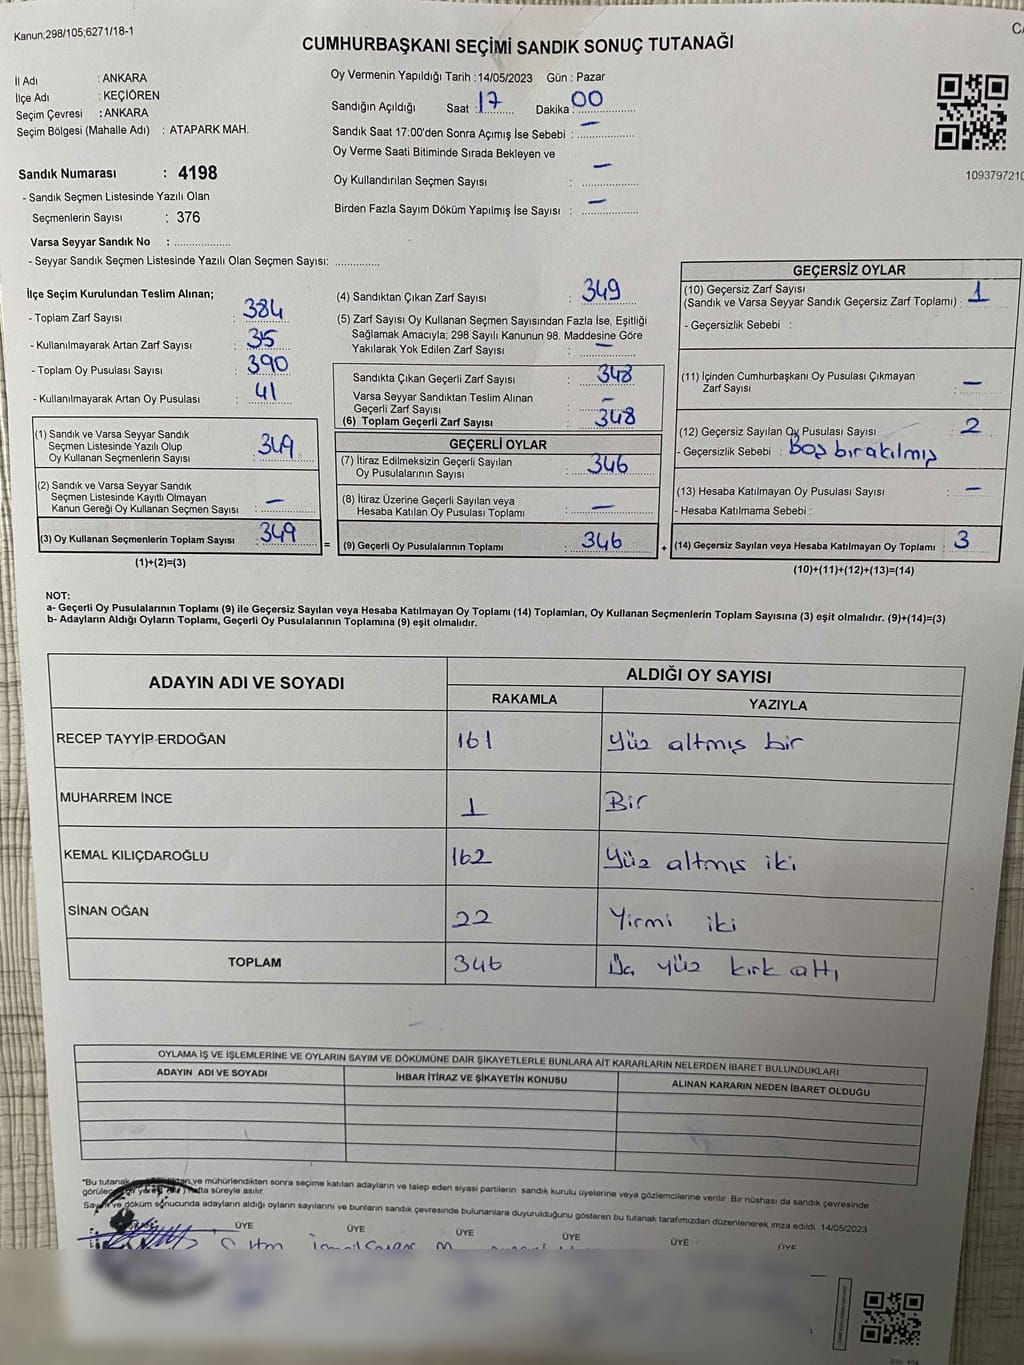 Kanun;298/105;6271/18-1
CUMHURBAŞKANI SEÇİMİ SANDIK SONUÇ TUTANAĞI
İl Adı : ANKARA
İlçe Adı : KEÇİÖREN
Seçim Çevresi : ANKARA
Seçim Bölgesi (Mahalle Adı) : ATAPARK MAH.
Sandık Numarası : 4198
- Sandık Seçmen Listesinde Yazılı Olan
Seçmenlerin Sayısı : 376
Varsa Seyyar Sandık No : ...................
- Seyyar Sandık Seçmen Listesinde Yazılı Olan Seçmen Sayısı: ...............
Oy Vermenin Yapıldığı Tarih : 14/05/2023 Gün : Pazar
Sandığın Açıldığı Saat : 17 Dakika : 00
Sandık Saat 17:00'den Sonra Açımış İse Sebebi : —
Oy Verme Saati Bitiminde Sırada Bekleyen ve
Oy Kullandırılan Seçmen Sayısı : —
Birden Fazla Sayım Döküm Yapılmış İse Sayısı : —
1093797210
İlçe Seçim Kurulundan Teslim Alınan;
- Toplam Zarf Sayısı : 384
- Kullanılmayarak Artan Zarf Sayısı : 35
- Toplam Oy Pusulası Sayısı : 390
- Kullanılmayarak Artan Oy Pusulası : 41
(1) Sandık ve Varsa Seyyar Sandık
Seçmen Listesinde Yazılı Olup
Oy Kullanan Seçmenlerin Sayısı : 349
(2) Sandık ve Varsa Seyyar Sandık
Seçmen Listesinde Kayıtlı Olmayan
Kanun Gereği Oy Kullanan Seçmen Sayısı : —
(3) Oy Kullanan Seçmenlerin Toplam Sayısı : 349
(1)+(2)=(3)
=
(4) Sandıktan Çıkan Zarf Sayısı : 349
(5) Zarf Sayısı Oy Kullanan Seçmen Sayısından Fazla İse, Eşitliği
Sağlamak Amacıyla; 298 Sayılı Kanunun 98. Maddesine Göre
Yakılarak Yok Edilen Zarf Sayısı : —
Sandıkta Çıkan Geçerli Zarf Sayısı : 348
Varsa Seyyar Sandıktan Teslim Alınan
Geçerli Zarf Sayısı : —
(6) Toplam Geçerli Zarf Sayısı : 348
GEÇERLİ OYLAR
(7) İtiraz Edilmeksizin Geçerli Sayılan
Oy Pusulalarının Sayısı : 346
(8) İtiraz Üzerine Geçerli Sayılan veya
Hesaba Katılan Oy Pusulası Toplamı : —
(9) Geçerli Oy Pusulalarının Toplamı : 346
+
GEÇERSİZ OYLAR
(10) Geçersiz Zarf Sayısı
(Sandık ve Varsa Seyyar Sandık Geçersiz Zarf Toplamı) : 1
- Geçersizlik Sebebi :
(11) İçinden Cumhurbaşkanı Oy Pusulası Çıkmayan
Zarf Sayısı : —
(12) Geçersiz Sayılan Oy Pusulası Sayısı : 2
- Geçersizlik Sebebi : Boş bırakılmış
(13) Hesaba Katılmayan Oy Pusulası Sayısı : —
- Hesaba Katılmama Sebebi :
(14) Geçersiz Sayılan veya Hesaba Katılmayan Oy Toplamı : 3
(10)+(11)+(12)+(13)=(14)
NOT:
a- Geçerli Oy Pusulalarının Toplamı (9) ile Geçersiz Sayılan veya Hesaba Katılmayan Oy Toplamı (14) Toplamları, Oy Kullanan Seçmenlerin Toplam Sayısına (3) eşit olmalıdır. (9)+(14)=(3)
b- Adayların Aldığı Oyların Toplamı, Geçerli Oy Pusulalarının Toplamına (9) eşit olmalıdır.
ADAYIN ADI VE SOYADI ALDIĞI OY SAYISI
RAKAMLA YAZIYLA
RECEP TAYYİP ERDOĞAN 161 Yüz altmış bir
MUHARREM İNCE 1 Bir
KEMAL KILIÇDAROĞLU 162 Yüz altmış iki
SİNAN OĞAN 22 Yirmi iki
TOPLAM 346 Üç yüz kırk altı
OYLAMA İŞ VE İŞLEMLERİNE VE OYLARIN SAYIM VE DÖKÜMÜNE DAİR ŞİKAYETLERLE BUNLARA AİT KARARLARIN NELERDEN İBARET BULUNDUKLARI
ADAYIN ADI VE SOYADI İHBAR İTİRAZ VE ŞİKAYETİN KONUSU ALINAN KARARIN NEDEN İBARET OLDUĞU
*Bu tutanak ve mühürlendikten sonra seçime katılan adayların ve talep eden siyasi partilerin sandık kurulu üyelerine veya gözlemcilerine verilir. Bir nüshası da sandık çevresinde
hafta süreyle asılır.
Sayım ve döküm sonucunda adayların aldığı oyların sayılarını ve bunların sandık çevresinde bulunanlara duyurulduğunu gösteren bu tutanak tarafımızdan düzenlenerek imza edildi. 14/05/2023
ÜYE ÜYE ÜYE ÜYE ÜYE ÜYE